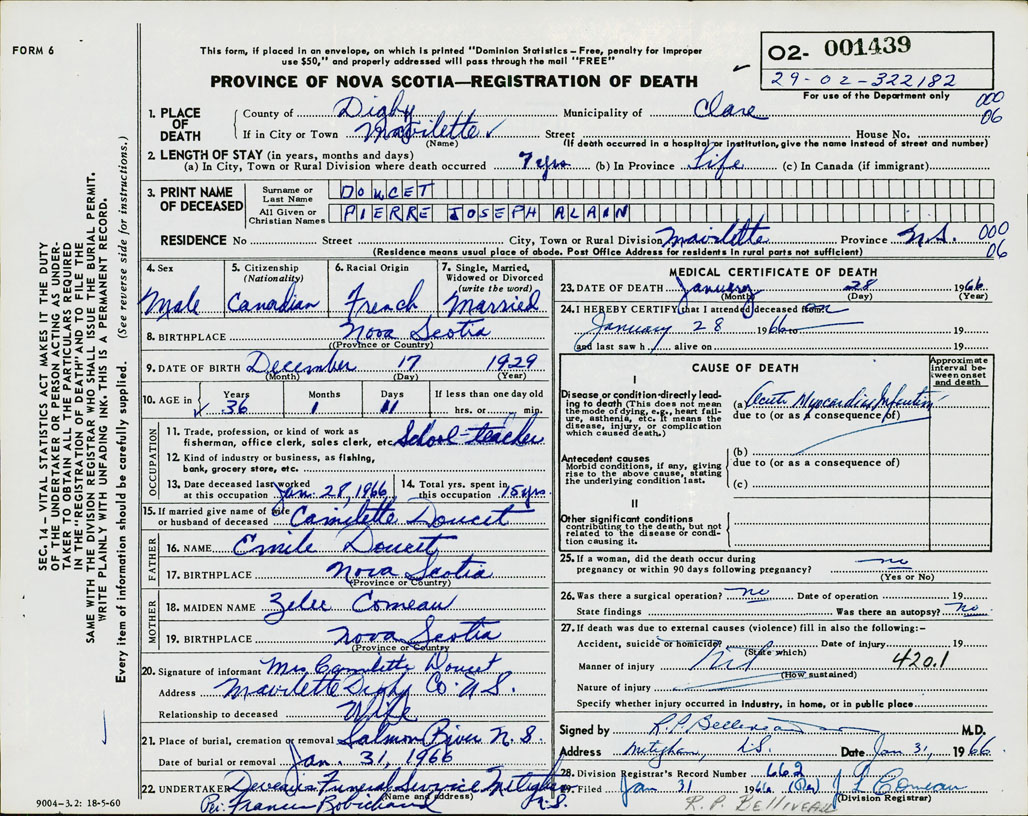 FORM 6
This form, if placed in an envelope, on which is printed "Dominion Statistics – Free, penalty for improper
use $50," and properly addressed will pass through the mail "FREE"
PROVINCE OF NOVA SCOTIA—REGISTRATION OF DEATH
O2- 001439
29-02-322182
For use of the Department only
000
06
1. PLACE OF DEATH
County of Digby Municipality of Clare
If in City or Town Mavilette ✓ Street House No.
(Name) (If death occurred in a hospital or institution, give the name instead of street and number)
2. LENGTH OF STAY (in years, months and days)
(a) In City, Town or Rural Division where death occurred 7 yrs (b) In Province Life (c) In Canada (if immigrant)
3. PRINT NAME OF DECEASED
Surname or Last Name DOUCET
All Given or Christian Names PIERRE JOSEPH ALAIN
RESIDENCE No Street City, Town or Rural Division Mavilette Province N.S. 000
06
(Residence means usual place of abode. Post Office Address for residents in rural parts not sufficient)
4. Sex Male
5. Citizenship (Nationality) Canadian
6. Racial Origin French
7. Single, Married, Widowed or Divorced (write the word) Married
8. BIRTHPLACE Nova Scotia
(Province or Country)
9. DATE OF BIRTH December 17 1929
(Month) (Day) (Year)
10. AGE in Years 36 Months 1 Days 11 If less than one day old hrs. or min.
OCCUPATION
11. Trade, profession, or kind of work as
fisherman, office clerk, sales clerk, etc. School teacher
12. Kind of industry or business, as fishing,
bank, grocery store, etc.
13. Date deceased last worked
at this occupation Jan. 28, 1966
14. Total yrs. spent in
this occupation 15 yrs.
15. If married give name of wife
or husband of deceased Camilette Doucet
FATHER
16. NAME Emile Doucet
17. BIRTHPLACE Nova Scotia
(Province or Country)
MOTHER
18. MAIDEN NAME Zelee Comeau
19. BIRTHPLACE Nova Scotia
(Province or Country)
20. Signature of informant Mrs Camilette Doucet
Address Mavilette Digby Co. N.S.
Relationship to deceased Wife
21. Place of burial, cremation or removal Salmon River N.S.
Date of burial or removal Jan. 31, 1966
22. UNDERTAKER Funeral Service Meteghan
(Name and address) N.S.
Per:
MEDICAL CERTIFICATE OF DEATH
23. DATE OF DEATH January 28 1966
(Month) (Day) (Year)
24. I HEREBY CERTIFY that I attended deceased from on
January 28 1966 to 19
and last saw h alive on 19
CAUSE OF DEATH
Approximate interval between onset and death
I
Disease or condition directly leading to death (This does not mean
the mode of dying, e.g., heart failure, asthenia, etc. It means the
disease, injury, or complication
which caused death.)
(a) Acute Myocardial Infarction
due to (or as a consequence of)
Antecedent causes
Morbid conditions, if any, giving
rise to the above cause, stating
the underlying condition last.
(b)
due to (or as a consequence of)
(c)
II
Other significant conditions
contributing to the death, but not
related to the disease or condition causing it.
25. If a woman, did the death occur during
pregnancy or within 90 days following pregnancy? no
(Yes or No)
26. Was there a surgical operation? no Date of operation 19
State findings Was there an autopsy? no
27. If death was due to external causes (violence) fill in also the following:–
Accident, suicide or homicide? Date of injury 19
(State which)
Manner of injury Nil 420.1
(How sustained)
Nature of injury
Specify whether injury occurred in industry, in home, or in public place
Signed by R.P. Belliveau M.D.
Address Meteghan, N.S. Date Jan 31, 1966
28. Division Registrar's Record Number 662
29. Filed Jan 31 1966 Comeau
(Division Registrar)
R. P. BELLIVEAU
SEC. 14 – VITAL STATISTICS ACT MAKES IT THE DUTY
OF THE UNDERTAKER OR PERSON ACTING AS UNDERTAKER TO OBTAIN ALL THE PARTICULARS REQUIRED
IN THE "REGISTRATION OF DEATH" AND TO FILE THE
SAME WITH THE DIVISION REGISTRAR WHO SHALL ISSUE THE BURIAL PERMIT.
WRITE PLAINLY WITH UNFADING INK. THIS IS A PERMANENT RECORD.
Every item of information should be carefully supplied. (See reverse side for instructions.)
9004-3.2: 18-5-60